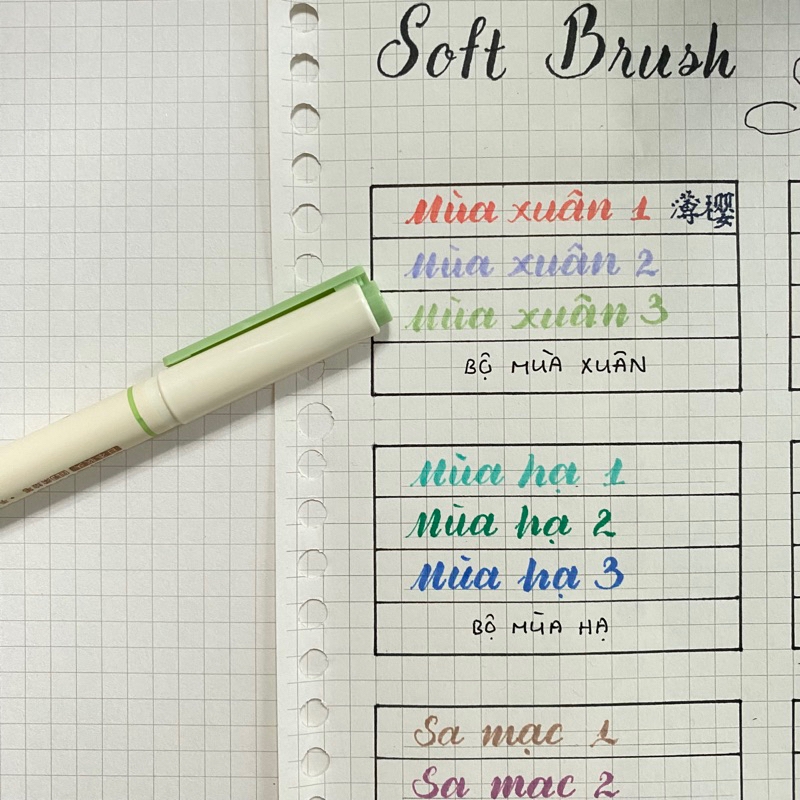 Soft Brush
Mùa xuân 1 薄樱
Mùa xuân 2
Mùa xuân 3
BỘ MÙA XUÂN
Mùa hạ 1
Mùa hạ 2
Mùa hạ 3
BỘ MÙA HẠ
Sa mạc 1
Sa mạc 2